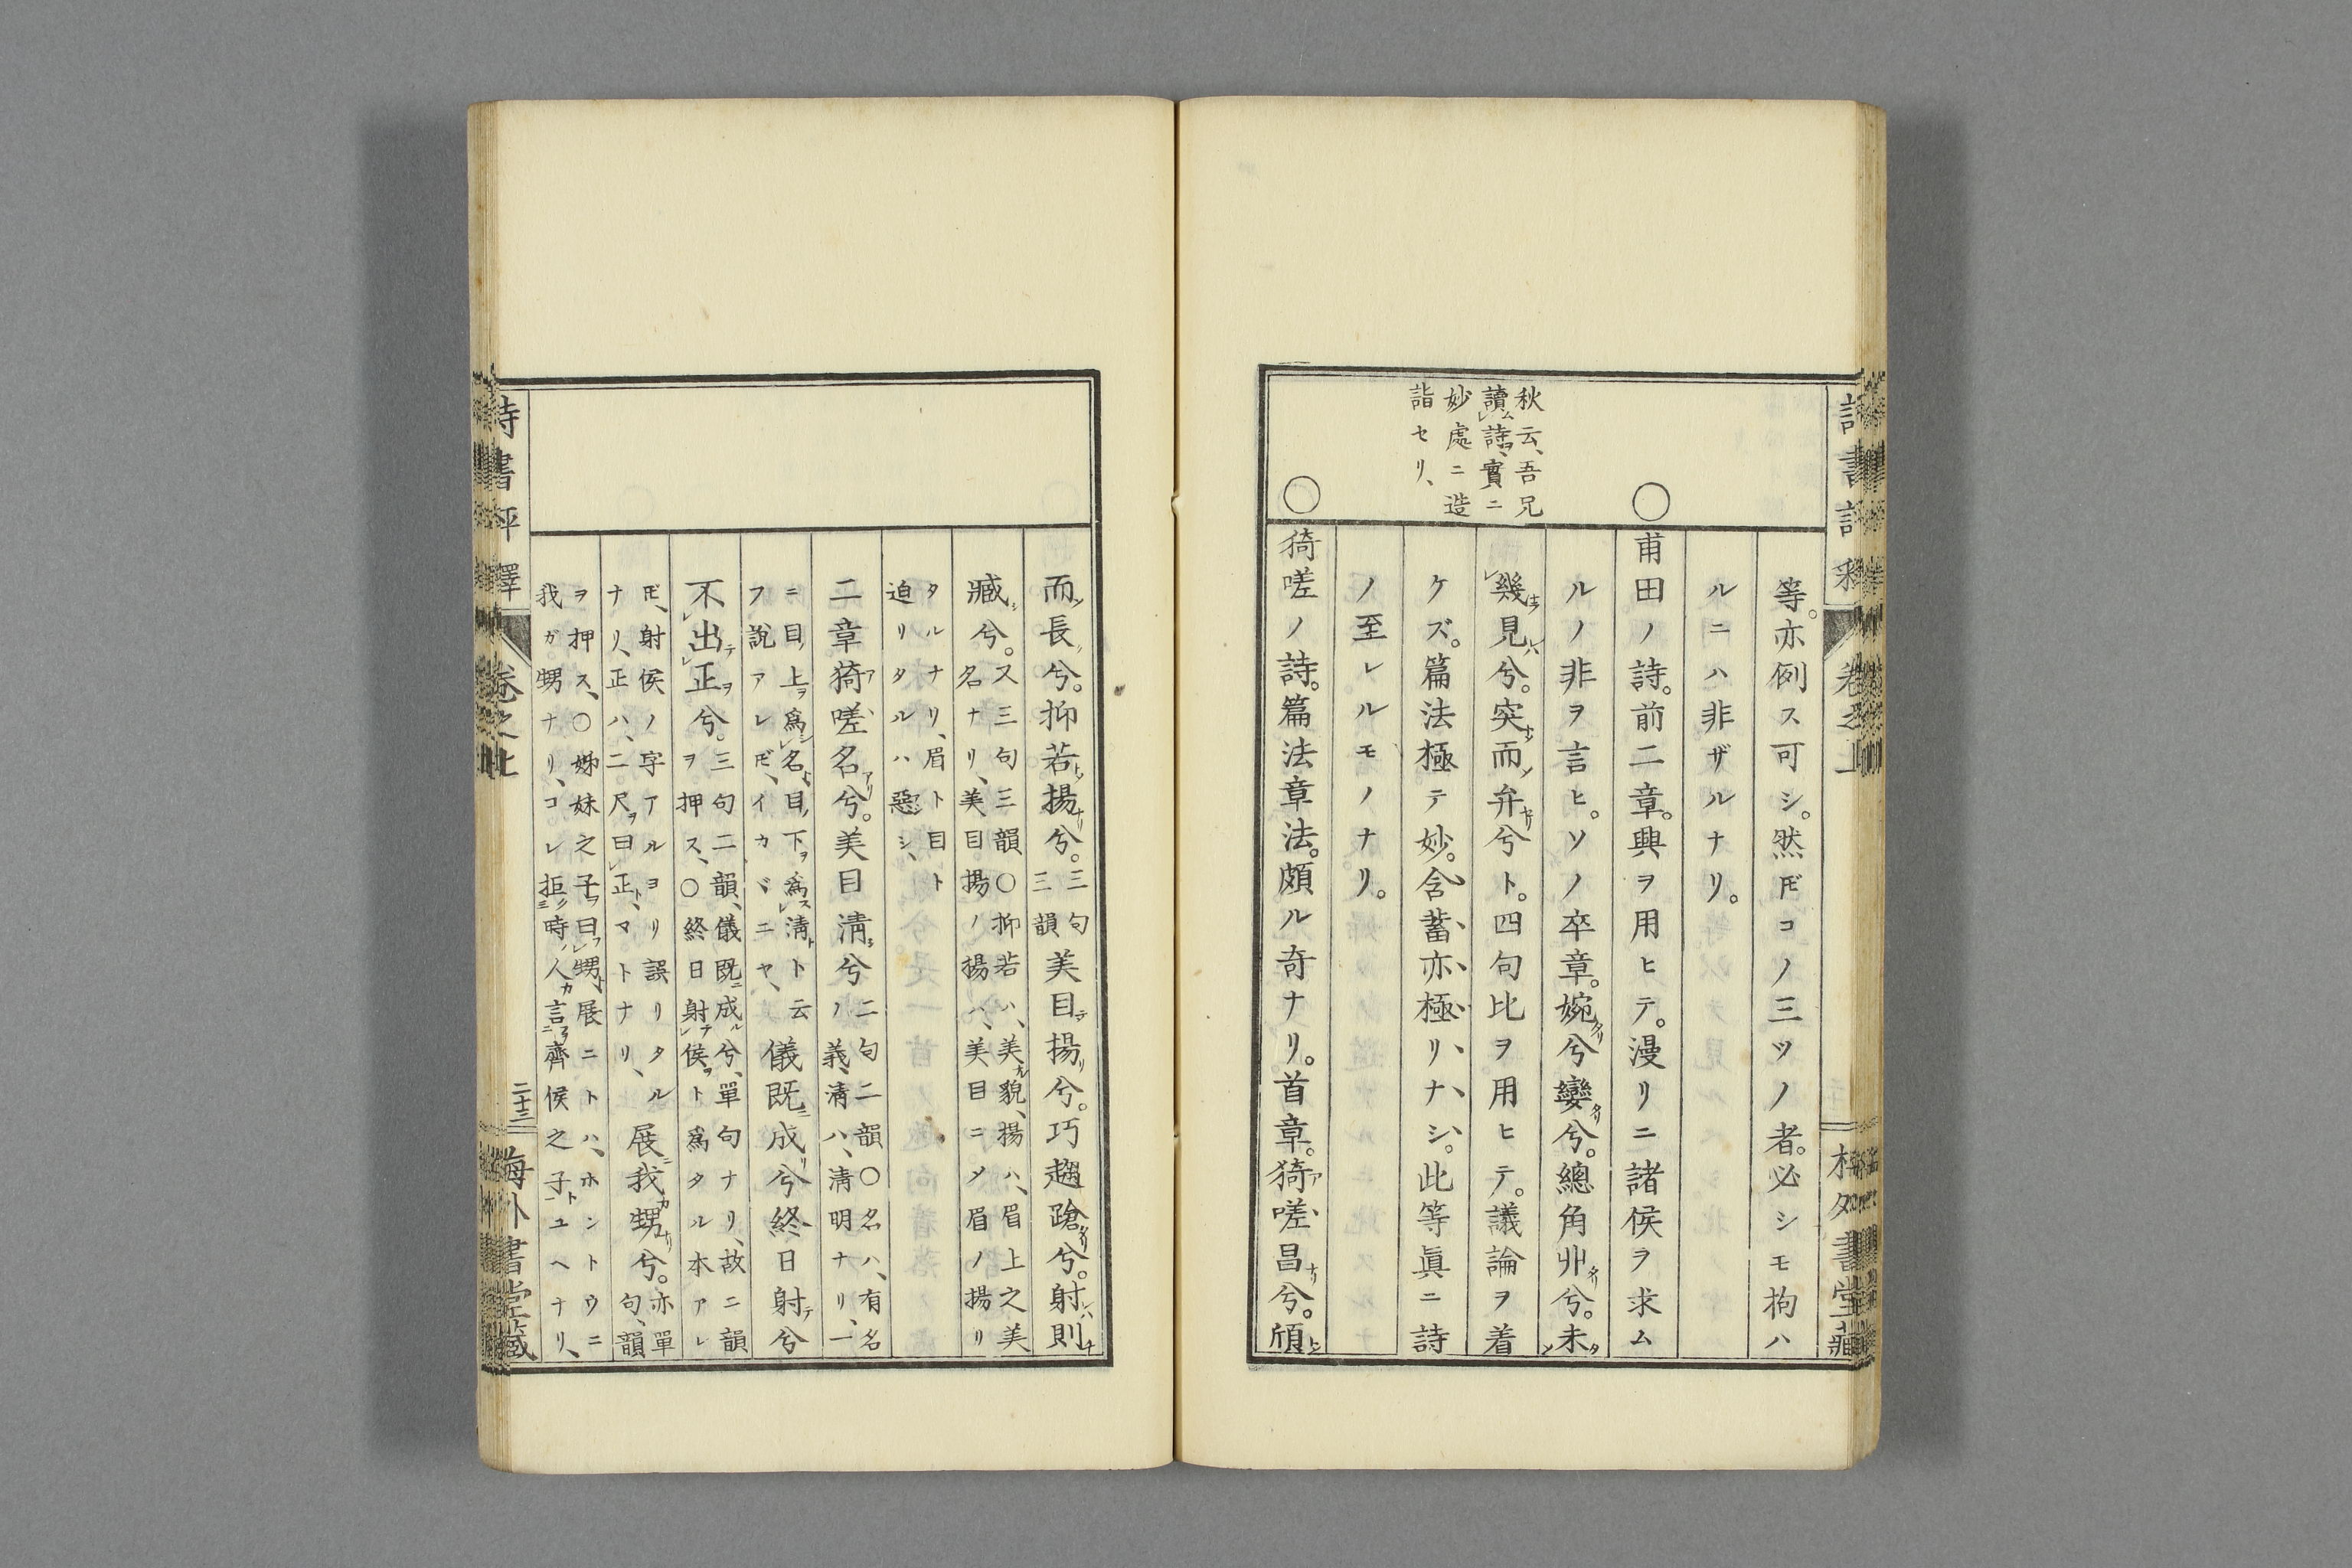 秋云、吾兄
讀詩、實ニ
妙處ニ造
詣セリ、
等。亦例ス可シ。然𪜈コノ三ツノ者。必シモ拘ハ
ルニハ非ザルナリ。
○甫田ノ詩。前二章。興ヲ用ヒテ。漫リニ諸侯ヲ求ム
ルノ非ヲ言ヒ。ソノ卒章。婉兮孌兮。總角丱兮。未
幾見兮。突而弁兮ト。四句比ヲ用ヒテ。議論ヲ着
ケズ。篇法極テ妙。含蓄亦極リナシ。此等眞ニ詩
ノ至レルモノナリ。
○猗嗟ノ詩。篇法章法。頗ル奇ナリ。首章。猗嗟昌兮。頎
而長兮。抑若揚兮。三句三韻美目揚兮。巧趨蹌兮。射則
臧兮。ス三句三韻○抑若ハ、美貌、揚ハ、眉上之美
名ナリ、美目揚ノ揚ハ、美目ニメ眉ノ揚リ
タルナリ、眉ト目ト
迫リタルハ惡シ、
二章猗嗟名兮。美目淸兮二句二韻○名ハ、有名
ノ義、淸ハ、淸明ナリ、一
ニ目上爲名、目下爲淸ト云
フ說アレ𪜈、イカヾニヤ、儀既成兮終日射兮
不出正兮。三句二韻、儀既成兮、單句ナリ、故ニ韻
ヲ押ス、○終日射侯ト爲タル本アレ
𪜈、射侯ノ字アルヨリ誤リタル
ナリ、正ハ、二尺曰正、マトナリ、展我甥兮。亦單句、韻
ヲ押ス、○姊妹之子曰甥、展ニトハ、ホントウニ
我ガ甥ナリ、コレ拒時人言齊侯之子ユヘナリ、
詩書評釋
卷之上
二十三
梅外書堂藏